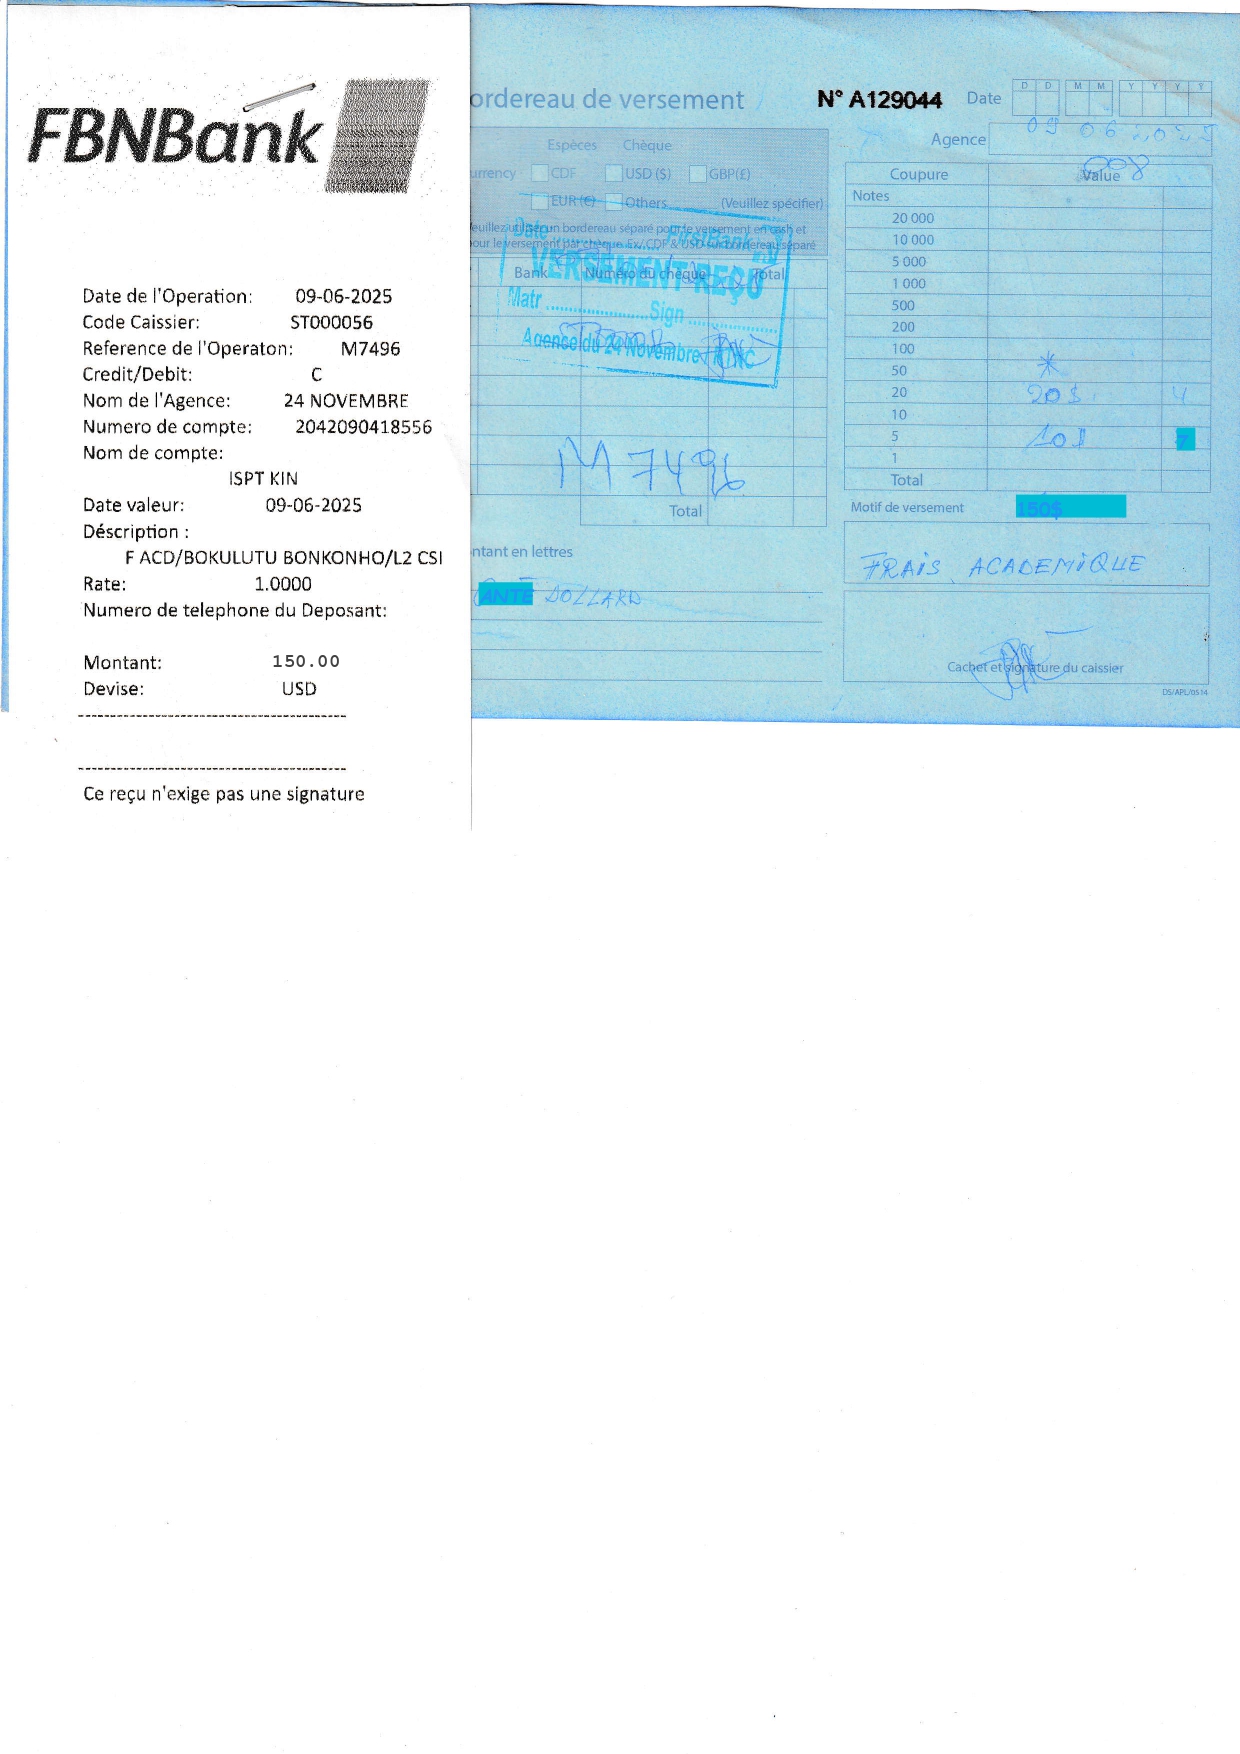 FBNBank
Date de l'Operation: 09-06-2025
Code Caissier: ST000056
Reference de l'Operaton: M7496
Credit/Debit: C
Nom de l'Agence: 24 NOVEMBRE
Numero de compte: 2042090418556
Nom de compte:
ISPT KIN
Date valeur: 09-06-2025
Déscription :
F ACD/BOKULUTU BONKONHO/L2 CSI
Rate: 1.0000
Numero de telephone du Deposant:
Montant: 150.00
Devise: USD
Ce reçu n'exige pas une signature
ordereau de versement N° A129044 Date
D D M M Y Y Y Y
09 06 2025
Agence
008
Espèces Chèque
urrency CDF USD ($) GBP(£)
EUR (€) Others (Veuillez spécifier)
euillez utiliser un bordereau séparé pour le versement en cash et
our le versement par chèque. Ex/.CDF & USD sur bordereau séparé
Bank Numéro du chèque Total
Date FirstBank
VERSEMENT REÇU
Matr Sign
Agence du 24 Novembre
M7496
Total
ntant en lettres
ANTE DOLLARD
Coupure Value
Notes
20 000
10 000
5 000
1 000
500
200
100
50
20 20$ 4
10
5 10$ 7
1
Total
Motif de versement 150$
FRAIS ACADEMIQUE
Cachet et signature du caissier
DS/APL/0514